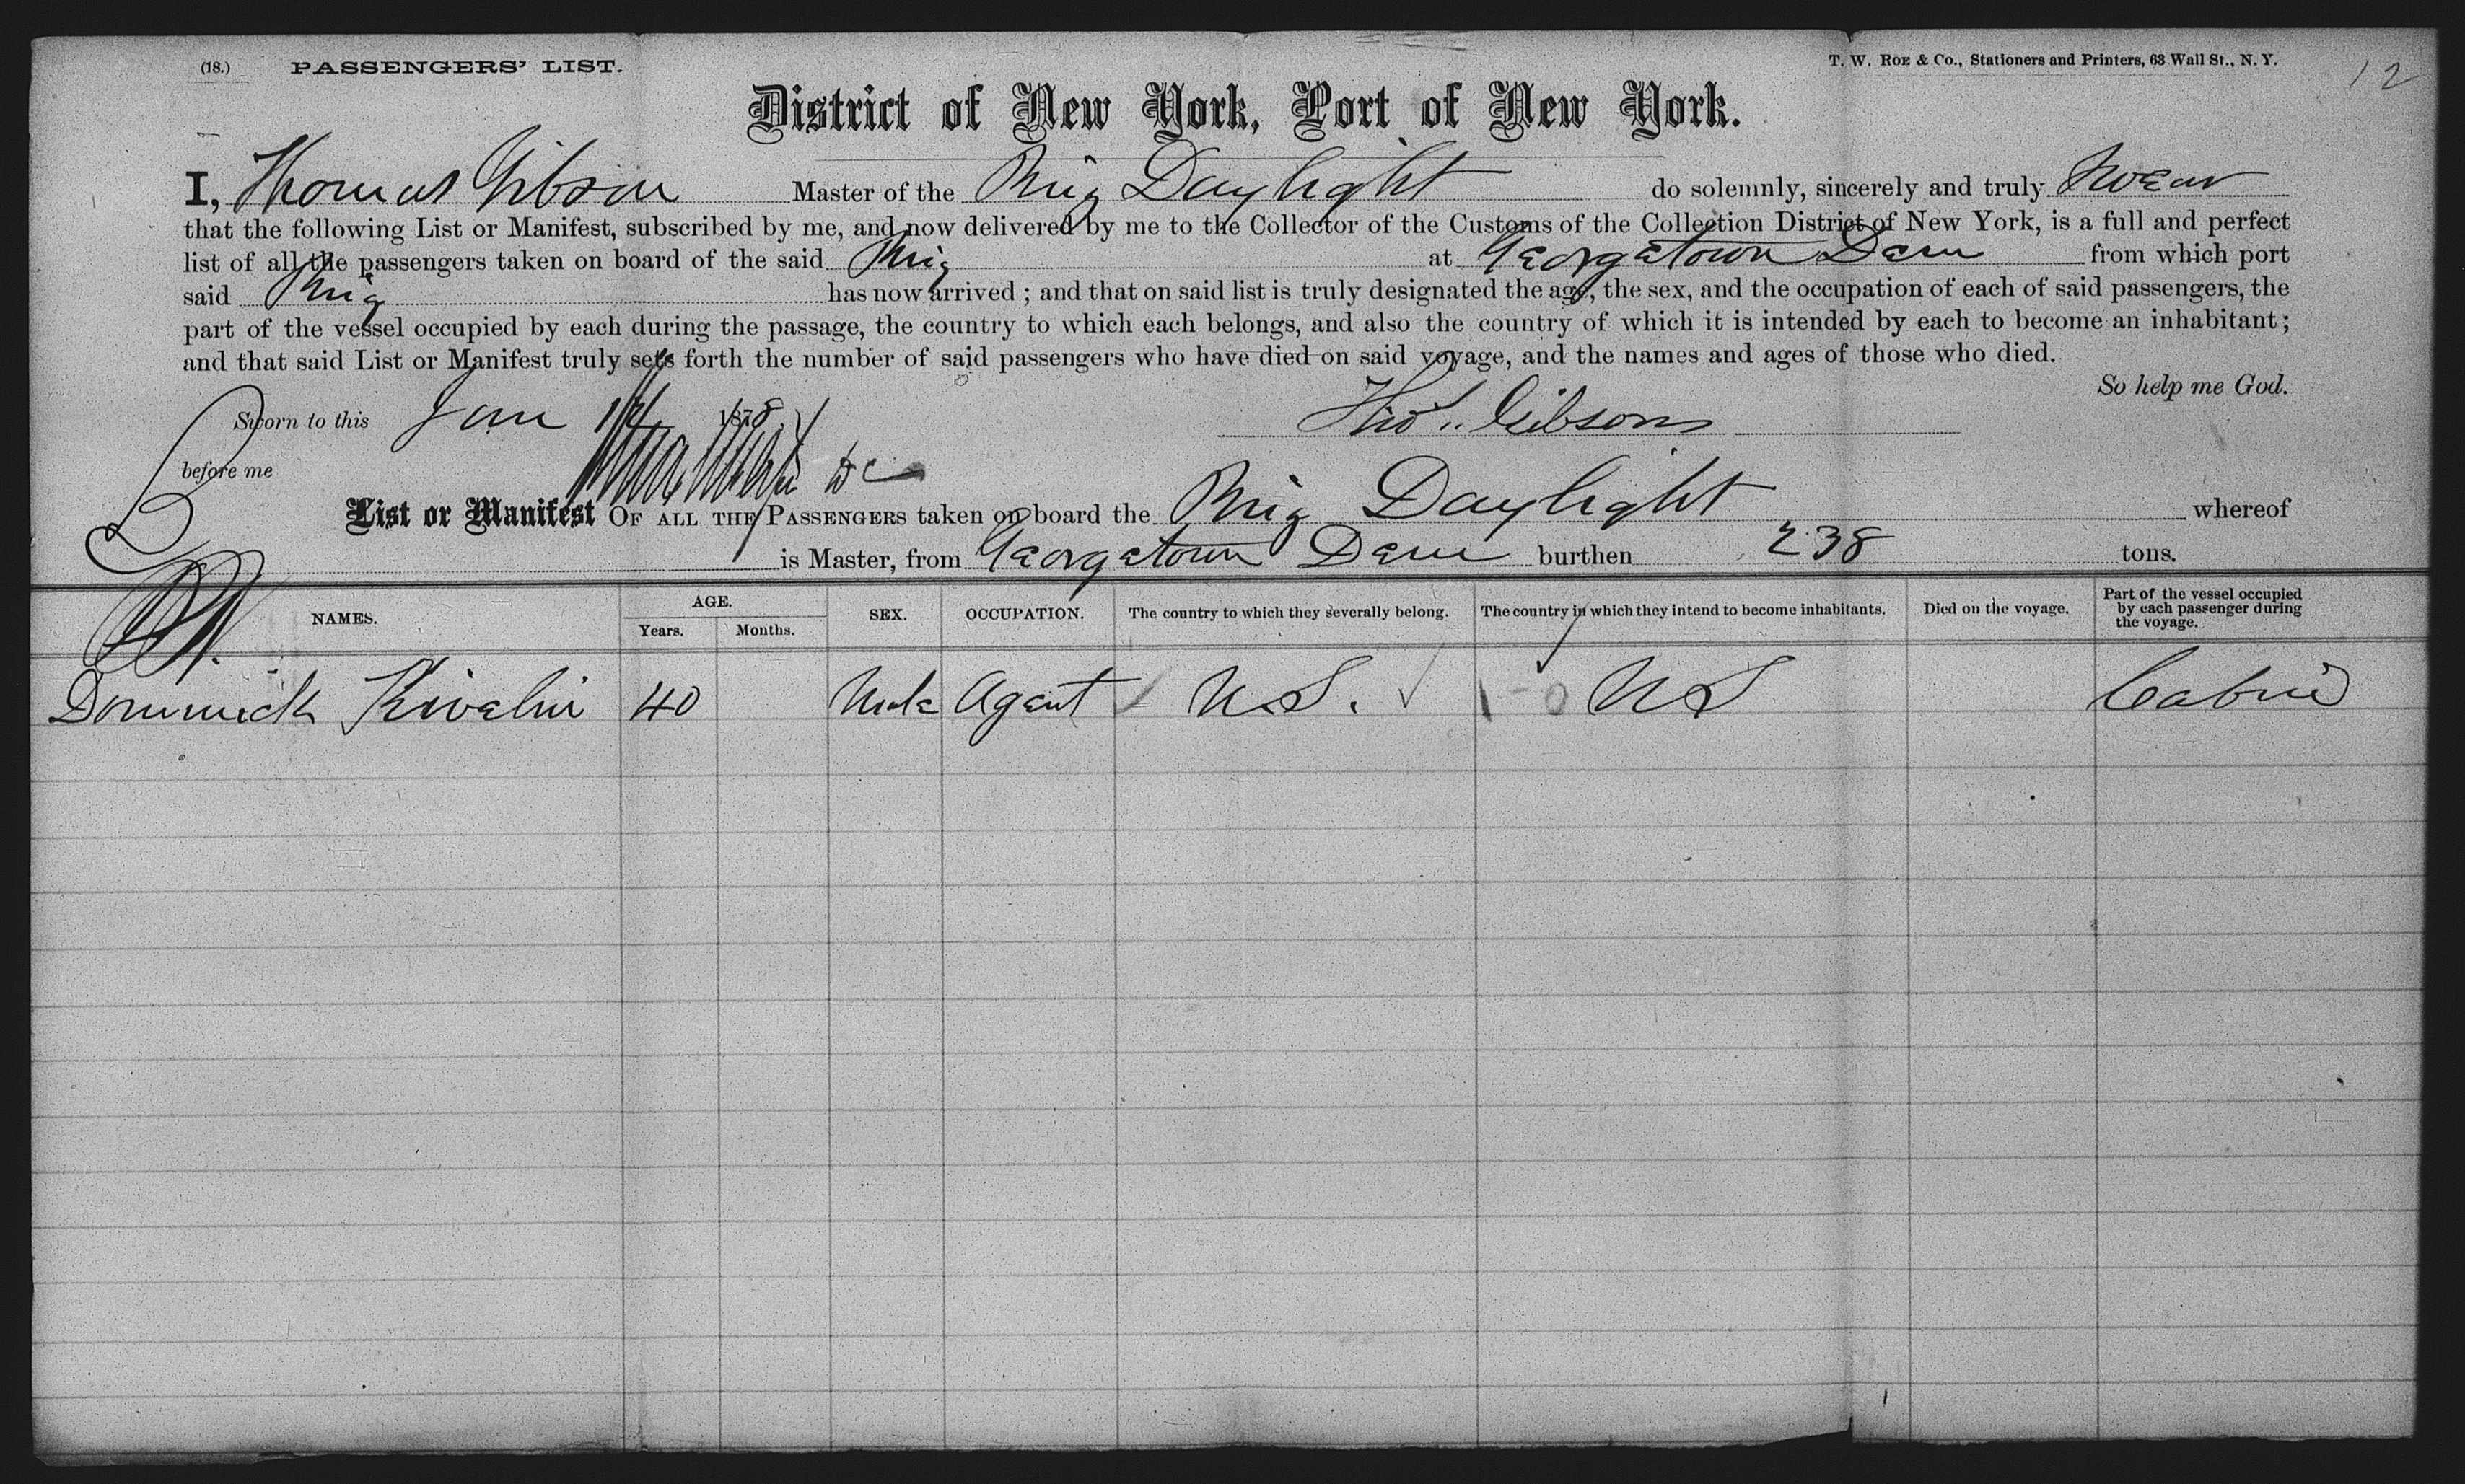 (18.) PASSENGERS' LIST. T. W. ROE & Co., Stationers and Printers, 63 Wall St., N. Y. 12
District of New York, Port of New York.
I, Thomas Gibson Master of the Brig Daylight do solemnly, sincerely and truly swear
that the following List or Manifest, subscribed by me, and now delivered by me to the Collector of the Customs of the Collection District of New York, is a full and perfect
list of all the passengers taken on board of the said Brig at Georgetown Dem from which port
said Brig has now arrived ; and that on said list is truly designated the age, the sex, and the occupation of each of said passengers, the
part of the vessel occupied by each during the passage, the country to which each belongs, and also the country of which it is intended by each to become an inhabitant;
and that said List or Manifest truly sets forth the number of said passengers who have died on said voyage, and the names and ages of those who died.
So help me God.
Sworn to this Jan 1878 Thos. Gibson
before me
List or Manifest OF ALL THE PASSENGERS taken on board the Brig Daylight whereof
is Master, from Georgetown Dem burthen 238 tons.
NAMES. AGE. Years. Months. SEX. OCCUPATION. The country to which they severally belong. The country in which they intend to become inhabitants. Died on the voyage. Part of the vessel occupied by each passenger during the voyage.
Dominick 40 Male Agent U.S. U S Cabin